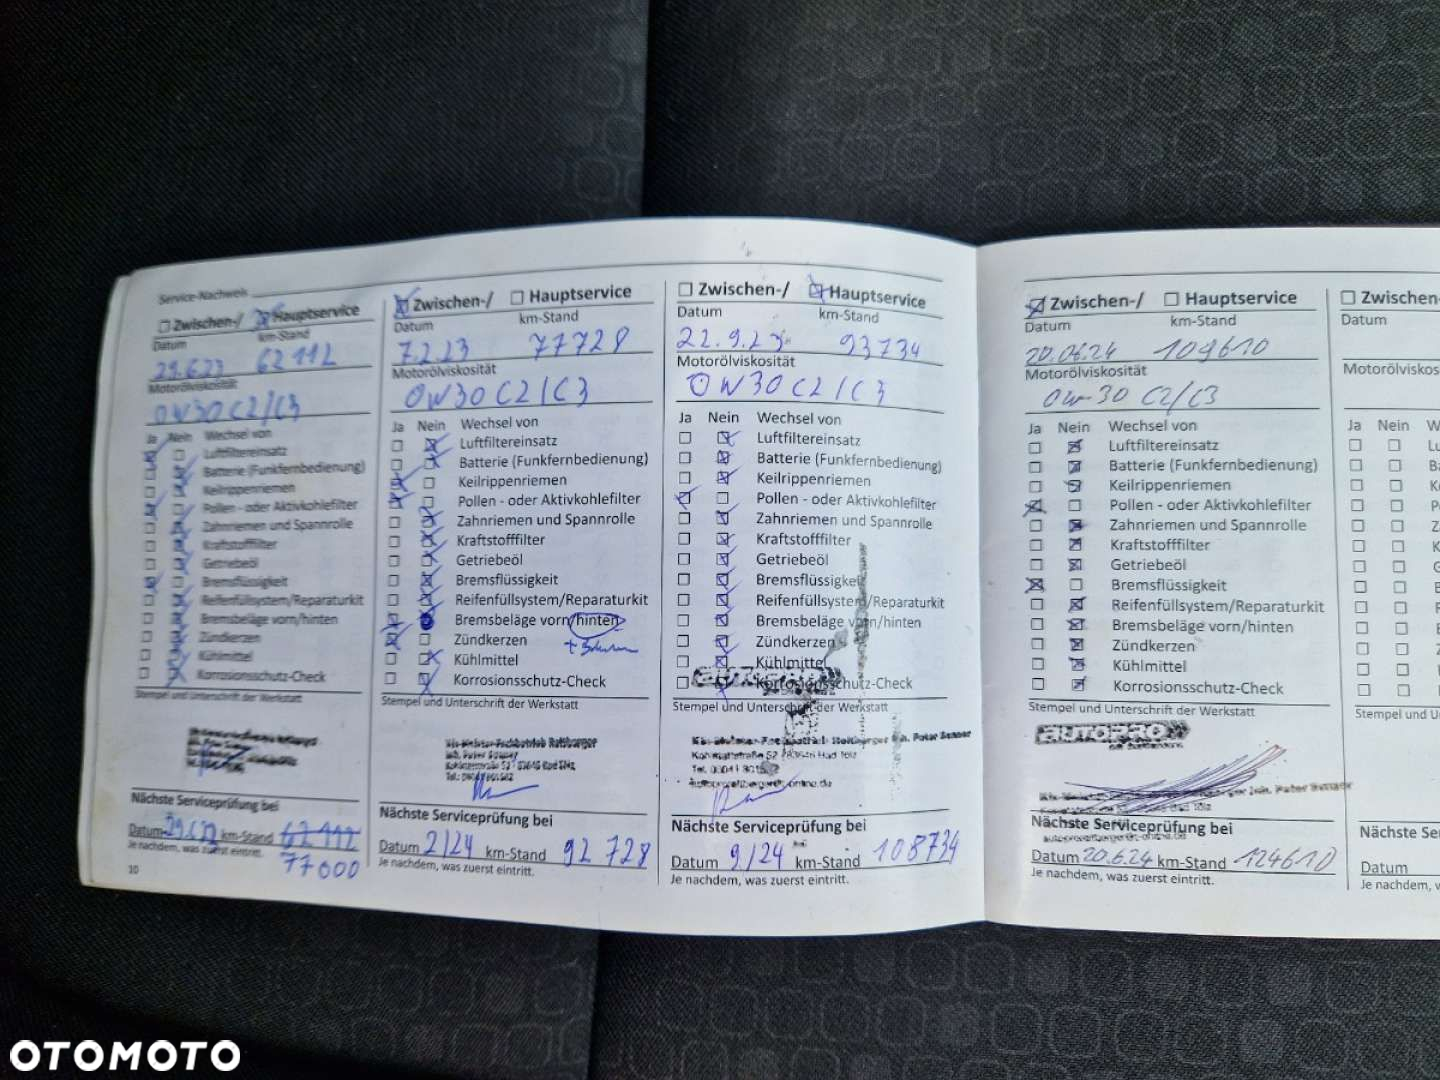 Service-Nachweis
☐ Zwischen-/ ☒ Hauptservice
Datum km-Stand
62112
Motorölviskosität
0W30 C2/C3
Ja Nein Wechsel von
Luftfiltereinsatz
Batterie (Funkfernbedienung)
Keilrippenriemen
Pollen - oder Aktivkohlefilter
Zahnriemen und Spannrolle
Kraftstofffilter
Getriebeöl
Bremsflüssigkeit
Reifenfüllsystem/Reparaturkit
Bremsbeläge vorn/hinten
Zündkerzen
Kühlmittel
Korrosionsschutz-Check
Stempel und Unterschrift der Werkstatt
Nächste Serviceprüfung bei
Datum km-Stand 62112
77000
Je nachdem, was zuerst eintritt.
10
☒ Zwischen-/ ☐ Hauptservice
Datum km-Stand
7.2.23 77728
Motorölviskosität
0W30 C2/C3
Ja Nein Wechsel von
Luftfiltereinsatz
Batterie (Funkfernbedienung)
Keilrippenriemen
Pollen - oder Aktivkohlefilter
Zahnriemen und Spannrolle
Kraftstofffilter
Getriebeöl
Bremsflüssigkeit
Reifenfüllsystem/Reparaturkit
Bremsbeläge vorn/hinten
Zündkerzen
Kühlmittel
Korrosionsschutz-Check
Stempel und Unterschrift der Werkstatt
Nächste Serviceprüfung bei
Datum 2/24 km-Stand 92728
Je nachdem, was zuerst eintritt.
☐ Zwischen-/ ☒ Hauptservice
Datum km-Stand
22.9.23 93734
Motorölviskosität
0W30 C2/C3
Ja Nein Wechsel von
Luftfiltereinsatz
Batterie (Funkfernbedienung)
Keilrippenriemen
Pollen - oder Aktivkohlefilter
Zahnriemen und Spannrolle
Kraftstofffilter
Getriebeöl
Bremsflüssigkeit
Reifenfüllsystem/Reparaturkit
Bremsbeläge vorn/hinten
Zündkerzen
Kühlmittel
Korrosionsschutz-Check
Stempel und Unterschrift der Werkstatt
Peter
Nächste Serviceprüfung bei
Datum 9/24 km-Stand 108734
Je nachdem, was zuerst eintritt.
☒ Zwischen-/ ☐ Hauptservice
Datum km-Stand
20.06.24 109610
Motorölviskosität
0w-30 C2/C3
Ja Nein Wechsel von
Luftfiltereinsatz
Batterie (Funkfernbedienung)
Keilrippenriemen
Pollen - oder Aktivkohlefilter
Zahnriemen und Spannrolle
Kraftstofffilter
Getriebeöl
Bremsflüssigkeit
Reifenfüllsystem/Reparaturkit
Bremsbeläge vorn/hinten
Zündkerzen
Kühlmittel
Korrosionsschutz-Check
Stempel und Unterschrift der Werkstatt
AUTOPRO
Nächste Serviceprüfung bei
Datum 20.6.24 km-Stand 124610
Je nachdem, was zuerst eintritt.
☐ Zwischen-
Datum
Motorölviskos
Ja Nein W
Stempel und U
Nächste Servi
Datum
Je nachdem, w
OTOMOTO